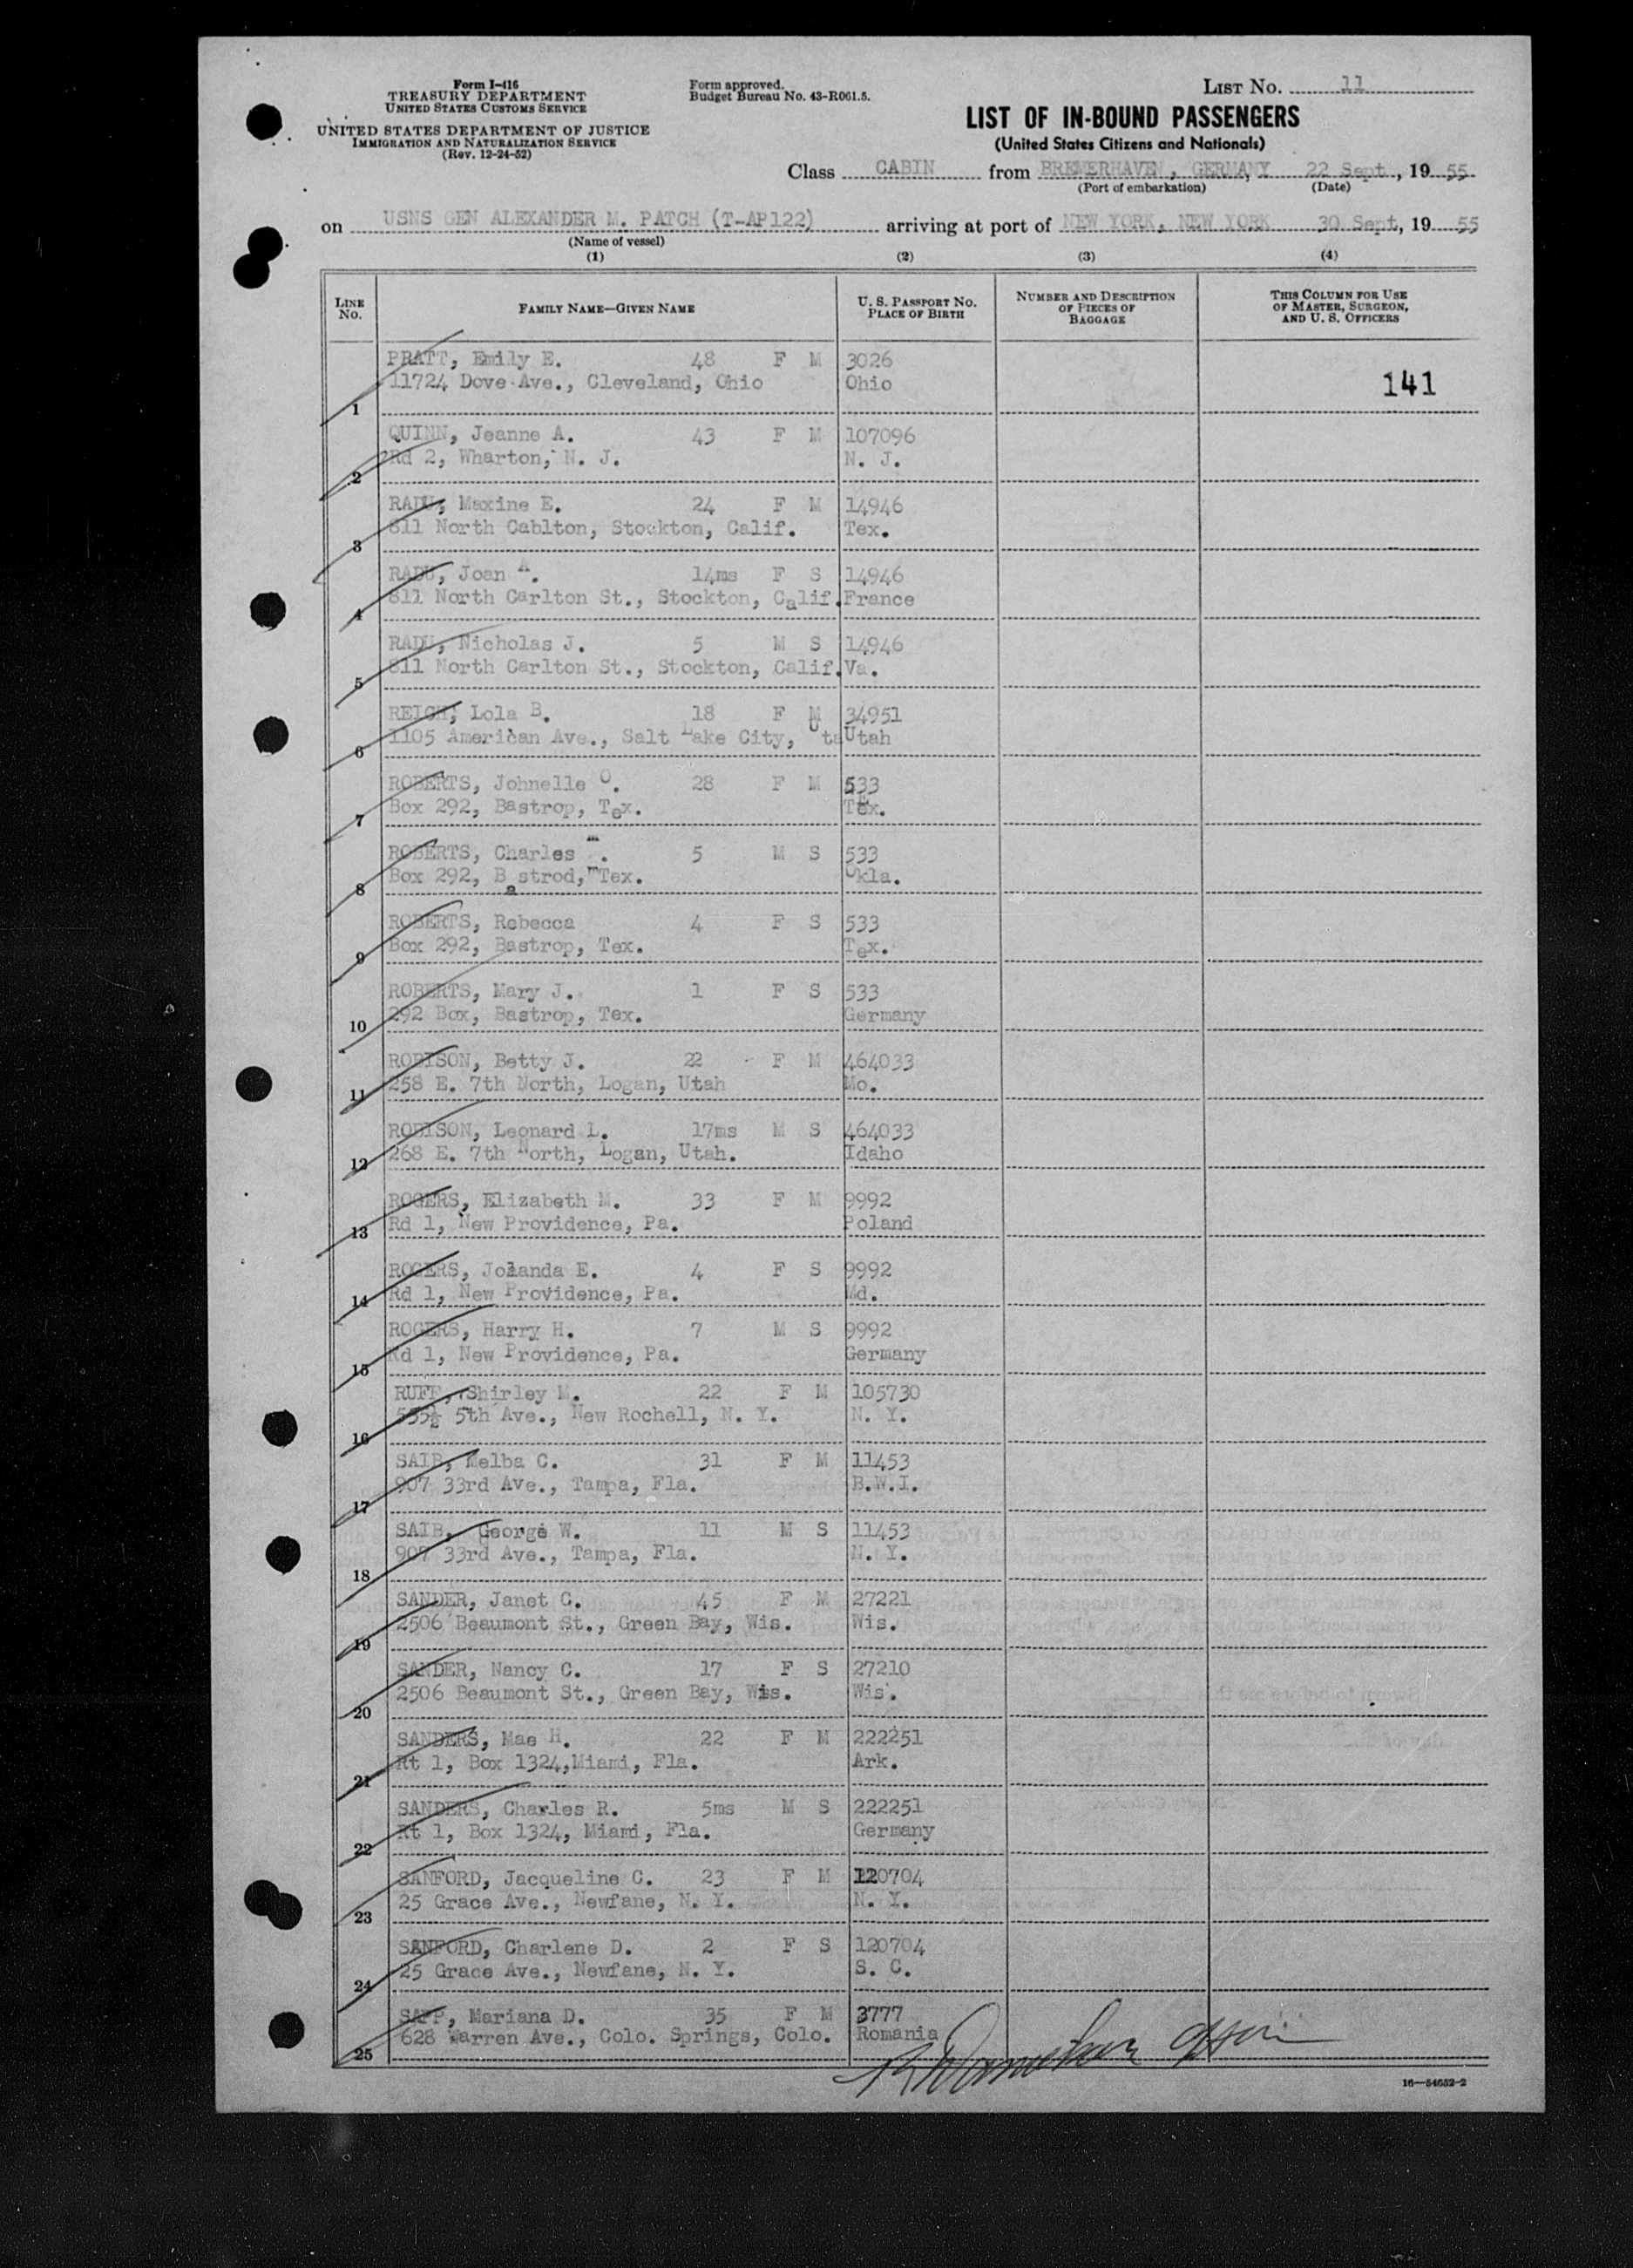 Form I-416
TREASURY DEPARTMENT
UNITED STATES CUSTOMS SERVICE
UNITED STATES DEPARTMENT OF JUSTICE
IMMIGRATION AND NATURALIZATION SERVICE
(Rev. 12-24-52)
Form approved.
Budget Bureau No. 43-R061.5.
LIST No. 11
LIST OF IN-BOUND PASSENGERS
(United States Citizens and Nationals)
Class CABIN from BREMERHAVEN, GERMANY 22 Sept, 19 55
(Port of embarkation) (Date)
on USNS GEN ALEXANDER M. PATCH (T-AP122) arriving at port of NEW YORK, NEW YORK 30 Sept, 19 55
(Name of vessel)
(1) (2) (3) (4)
LINE No. FAMILY NAME—GIVEN NAME U. S. PASSPORT NO. PLACE OF BIRTH NUMBER AND DESCRIPTION OF PIECES OF BAGGAGE THIS COLUMN FOR USE OF MASTER, SURGEON, AND U. S. OFFICERS
PRATT, Emily E. 48 F M 3026
11724 Dove Ave., Cleveland, Ohio Ohio 141
1
QUINN, Jeanne A. 43 F M 107096
Rd 2, Wharton, N. J. N. J.
2
RADU, Maxine E. 24 F M 14946
811 North Cablton, Stockton, Calif. Tex.
3
RADU, Joan A. 14ms F S 14946
811 North Carlton St., Stockton, Calif. France
4
RADU, Nicholas J. 5 M S 14946
811 North Carlton St., Stockton, Calif. Va.
5
REIGH, Lola B. 18 F M 34951
1105 American Ave., Salt Lake City, Uta Utah
6
ROBERTS, Johnelle O. 28 F M 533
Box 292, Bastrop, Tex. Tex.
7
ROBERTS, Charles m. 5 M S 533
Box 292, Bastrod, Tex. Okla.
8
ROBERTS, Rebecca 4 F S 533
Box 292, Bastrop, Tex. Tex.
9
ROBERTS, Mary J. 1 F S 533
292 Box, Bastrop, Tex. Germany
10
ROBISON, Betty J. 22 F M 464033
258 E. 7th North, Logan, Utah Mo.
11
ROBISON, Leonard L. 17ms M S 464033
268 E. 7th North, Logan, Utah. Idaho
12
ROGERS, Elizabeth M. 33 F M 9992
Rd 1, New Providence, Pa. Poland
13
ROGERS, Jolanda E. 4 F S 9992
Rd 1, New Providence, Pa. Md.
14
ROGERS, Harry H. 7 M S 9992
Rd 1, New Providence, Pa. Germany
15
RUFF, Shirley M. 22 F M 105730
535½ 5th Ave., New Rochell, N. Y. N. Y.
16
SAIB, Melba C. 31 F M 11453
907 33rd Ave., Tampa, Fla. B.W.I.
17
SAIB, George W. 11 M S 11453
907 33rd Ave., Tampa, Fla. N. Y.
18
SANDER, Janet C. 45 F M 27221
2506 Beaumont St., Green Bay, Wis. Wis.
19
SANDER, Nancy C. 17 F S 27210
2506 Beaumont St., Green Bay, Wis. Wis.
20
SANDERS, Mae H. 22 F M 222251
Rt 1, Box 1324, Miami, Fla. Ark.
21
SANDERS, Charles R. 5ms M S 222251
Rt 1, Box 1324, Miami, Fla. Germany
22
SANFORD, Jacqueline C. 23 F M 120704
25 Grace Ave., Newfane, N. Y. N. Y.
23
SANFORD, Charlene D. 2 F S 120704
25 Grace Ave., Newfane, N. Y. S. C.
24
SAPP, Mariana D. 35 F M 3777
628 Warren Ave., Colo. Springs, Colo. Romania
25
16—54652-2